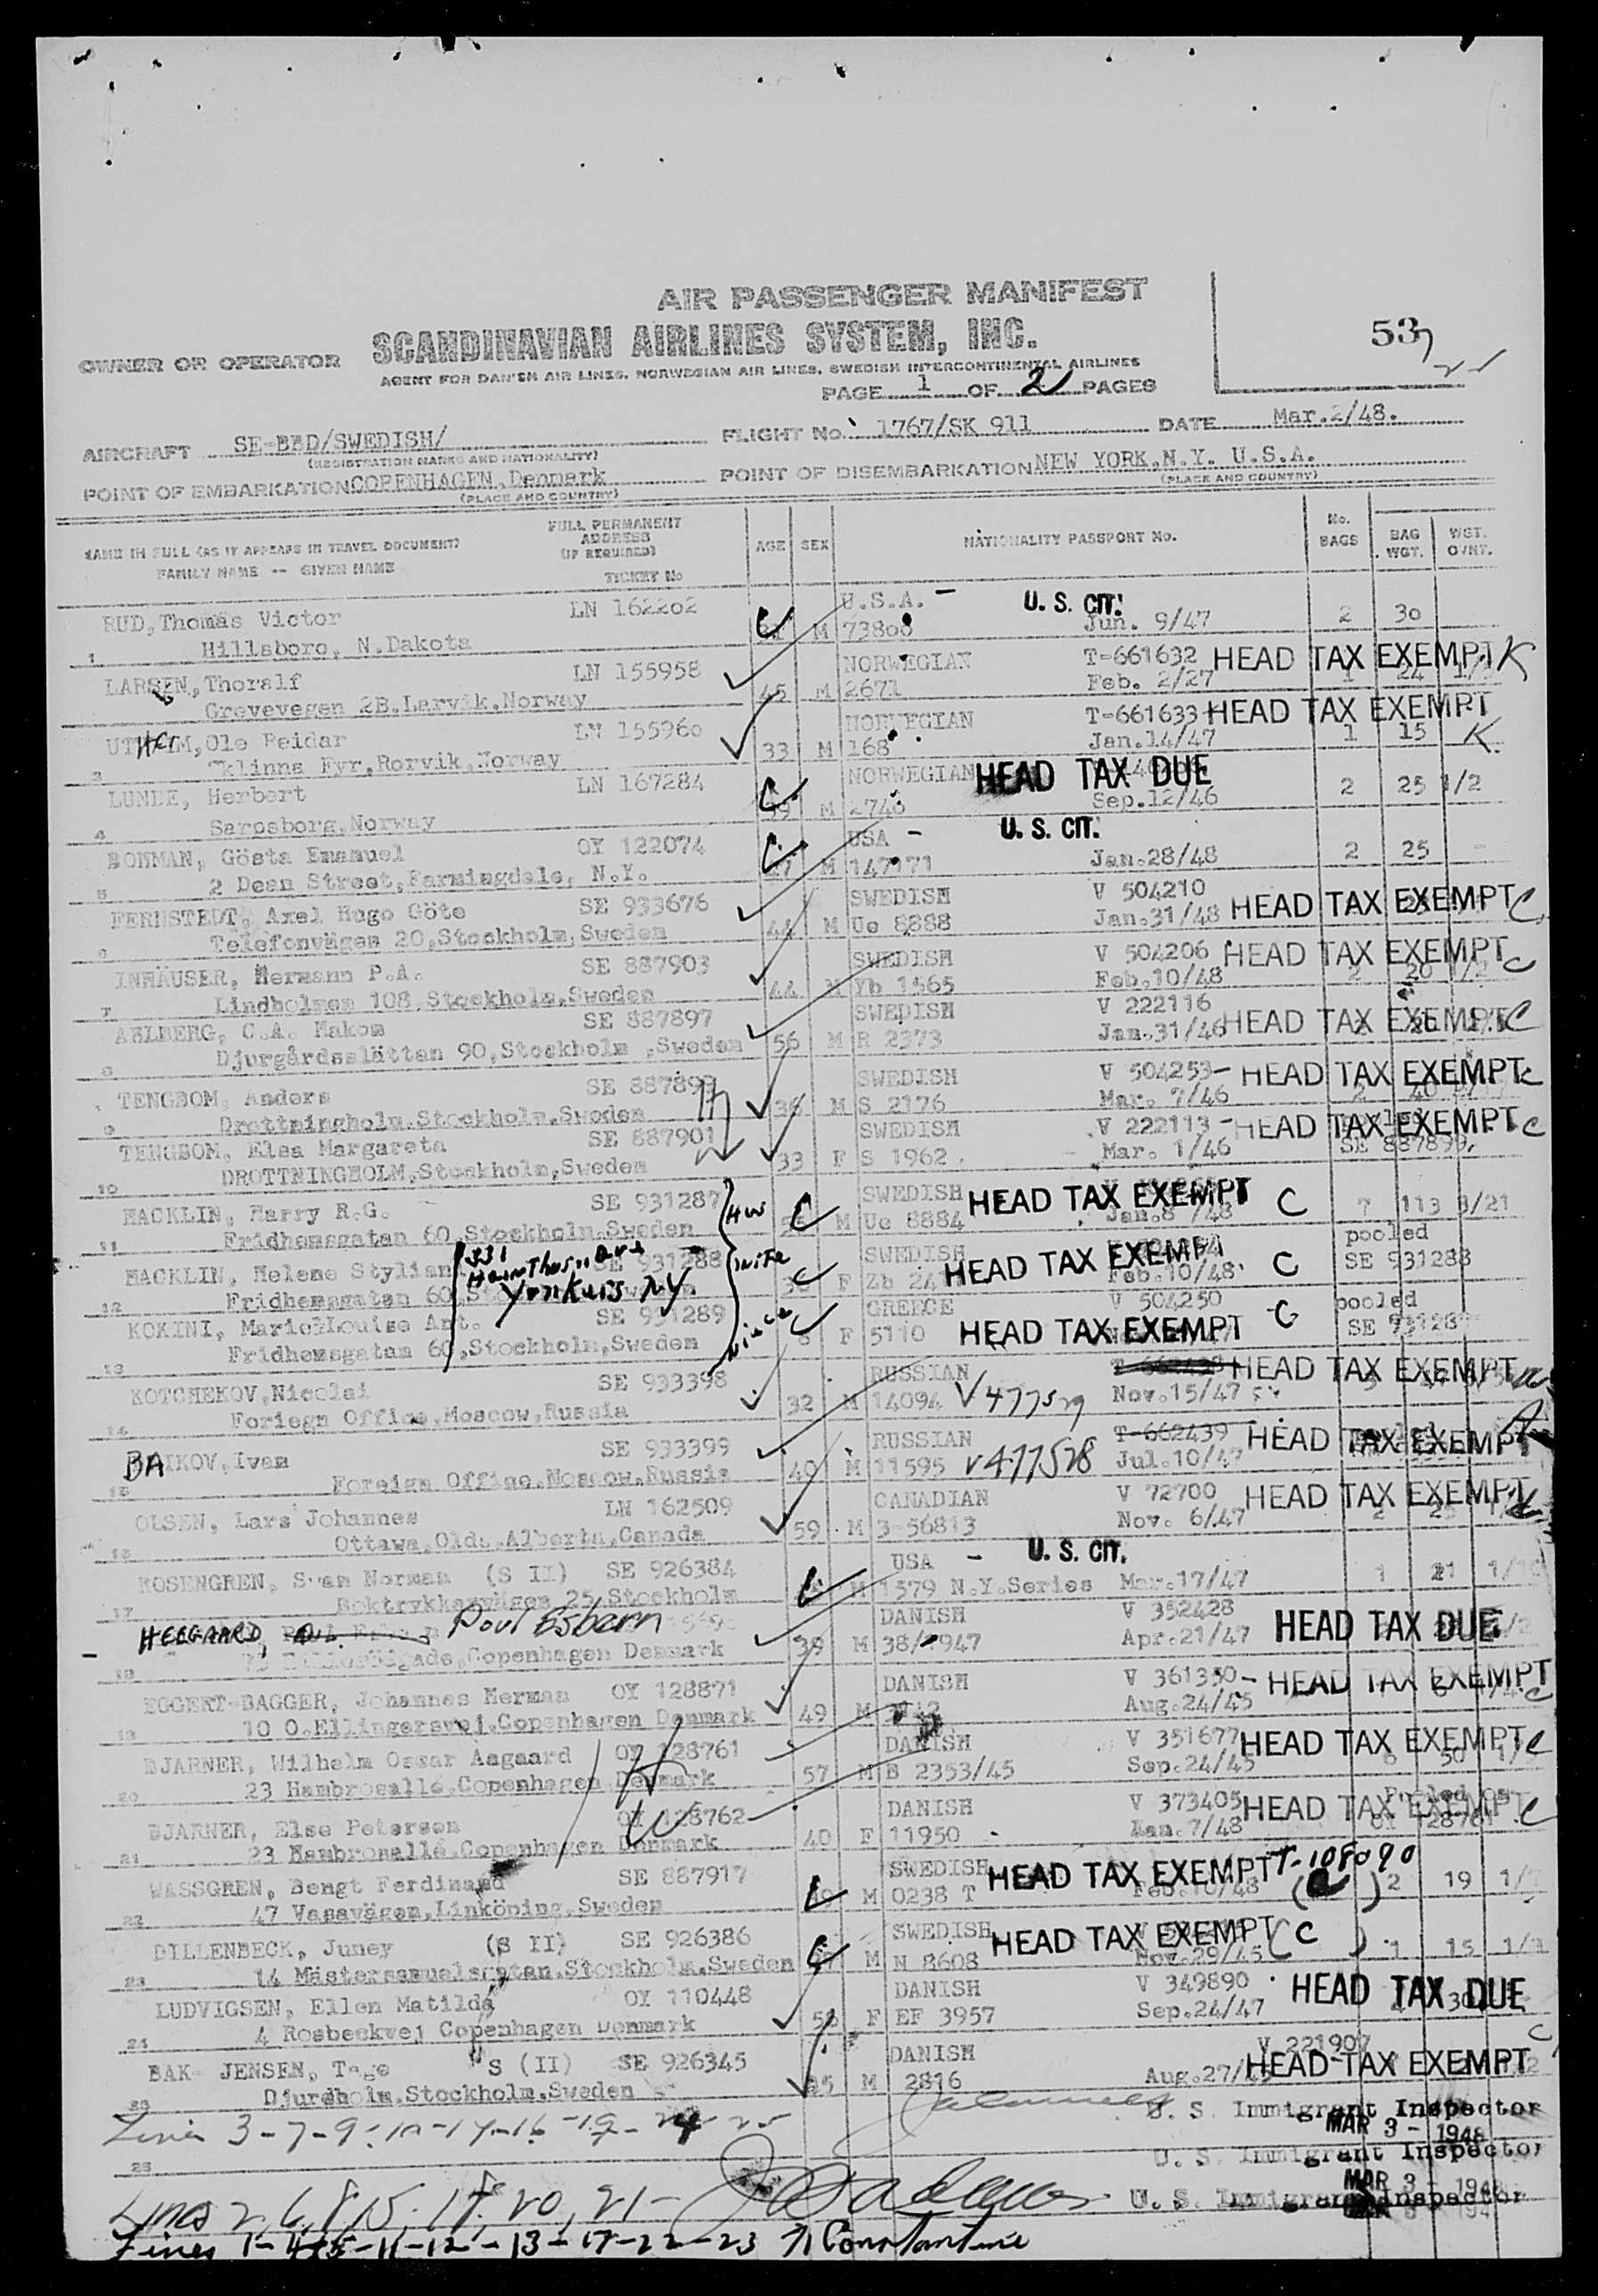 AIR PASSENGER MANIFEST
537
OWNER OR OPERATOR SCANDINAVIAN AIRLINES SYSTEM, INC.
AGENT FOR DANISH AIR LINES, NORWEGIAN AIR LINES, SWEDISH INTERCONTINENTAL AIRLINES
PAGE 1 OF 2 PAGES
AIRCRAFT SE-BBD/SWEDISH/ FLIGHT No. 1767/SK 911 DATE Mar.2/48.
(REGISTRATION MARKS AND NATIONALITY)
POINT OF EMBARKATION COPENHAGEN, Denmark POINT OF DISEMBARKATION NEW YORK, N.Y. U.S.A.
(PLACE AND COUNTRY) (PLACE AND COUNTRY)
NAME IN FULL (AS IT APPEARS IN TRAVEL DOCUMENT) FULL PERMANENT ADDRESS (IF REQUIRED) AGE SEX NATIONALITY PASSPORT No. No. BAGS BAG WGT. WGT. OVNT.
FAMILY NAME -- GIVEN NAME TICKET No
RUD, Thomas Victor LN 162202 U.S.A. - U. S. CIT.
1 Hillsboro, N.Dakota M 73800 Jun. 9/47 2 30
LARSEN, Thoralf LN 155958 NORWEGIAN T-661632 HEAD TAX EXEMPT K
Grevevegen 2B.Larvik.Norway 45 M 2671 Feb. 2/27 1 24
Ole Reidar LN 155960 NORWEGIAN T-661633 HEAD TAX EXEMPT
3 Sklinna Fyr, Rorvik, Norway 33 M 168 Jan.14/47 1 15 K.
LUNDE, Herbert LN 167284 NORWEGIAN HEAD TAX DUE
4 Sarpsborg, Norway M 2740 Sep.12/46 2 25 1/2
BOHMAN, Gösta Emanuel OY 122074 USA - U. S. CIT.
5 2 Dean Street, Farmingdale, N.Y. M 147171 Jan.28/48 2 25
FERNSTEDT, Axel Hugo Göte SE 933676 SWEDISH V 504210 HEAD TAX EXEMPT C
6 Telefonvägen 20, Stockholm, Sweden 44 M Ue 8888 Jan.31/48
INHÄUSER, Hermann P.A. SE 887903 SWEDISH V 504206 HEAD TAX EXEMPT C
7 Lindholmen 108, Stockholm, Sweden 44 M Yb 1565 Feb.10/48 2 20 1/2
AHLBERG, C.A. Hakom SE 887897 SWEDISH V 222116 HEAD TAX EXEMPT C
8 Djurgårdsslättan 90, Stockholm, Sweden 56 M R 2373 Jan.31/46
TENGBOM, Anders SE 887899 SWEDISH V 504253- HEAD TAX EXEMPT C
9 Drottningholm.Stockholm.Sweden 36 M S 2176 Mar. 7/46 2 40
TENGBOM, Elsa Margareta SE 887901 SWEDISH V 222113 - HEAD TAX EXEMPT C
10 DROTTNINGHOLM, Stockholm, Sweden 33 F S 1962 Mar. 1/46 SE 887899.
MACKLIN, Harry R.G. SE 931287 SWEDISH HEAD TAX EXEMPT C
11 Fridhemsgatan 60, Stockholm, Sweden M Ue 8884 Jan.8 /48 7 113 3/21
MACKLIN, Helene Stylian SE 931288 wife SWEDISH HEAD TAX EXEMPT C pooled SE 931288
12 Fridhemsgatan 60 Yonkers NY F Feb.10/48
KOKINI, Marie-Louise Ant. SE 931289 niece GREECE V 504250 pooled
13 Fridhemsgatan 60, Stockholm, Sweden 8 F 5110 HEAD TAX EXEMPT C
KOTCHEKOV, Nicolai SE 933398 RUSSIAN T-662438 HEAD TAX EXEMPT
14 Foriegn Office, Moscow, Russia 32 M 14094 V 477529 Nov.15/47
BAIKOV, Ivan SE 933399 RUSSIAN T-662439 HEAD TAX EXEMPT
15 Foreign Office, Moscow, Russia 40 M 11595 V 477528 Jul.10/47
OLSEN, Lars Johannes LN 162509 CANADIAN V 72700 HEAD TAX EXEMPT
16 Ottawa, Olds, Alberta, Canada 59 M 3-56813 Nov. 6/47
ROSENGREN, Sven Norman (S II) SE 926384 USA - U. S. CIT.
17 Boktryckarvägen 25, Stockholm M 1579 N.Y.Series Mar.17/47 1 21
HEEGAARD, Poul Esbern DANISH V 352428 HEAD TAX DUE
18 Copenhagen Denmark 39 M Apr.21/47
EGGERT-BAGGER, Johannes Herman OY 128871 DANISH V 361350 - HEAD TAX EXEMPT C
19 10 O.Ellingersvej.Copenhagen Denmark 49 M Aug.24/45
BJARNER, Wilhelm Oscar Aagaard OY 128761 H DANISH V 351677 HEAD TAX EXEMPT C
20 23 Hambrosallé, Copenhagen Denmark 57 M B 2353/45 Sep.24/45
BJARNER, Else Petersen OY 128762 W DANISH V 373405 HEAD TAX EXEMPT C
21 23 Hambrosallé, Copenhagen Denmark 40 F 11950 Jan. 7/48 OY 128761
WASSGREN, Bengt Ferdinand SE 887917 SWEDISH HEAD TAX EXEMPT T-108090
22 47 Vasavägen, Linköping, Sweden M 0238 T Feb.10/48 2 19
DILLENBECK, Juney (S II) SE 926386 SWEDISH HEAD TAX EXEMPT (C)
23 14 Mästersamuelsgatan.Stockholm.Sweden M N 8608 Nov.29/45 1 15
LUDVIGSEN, Ellen Matilda OY 110448 DANISH V 349890 HEAD TAX DUE
24 4 Rosbeekvej Copenhagen Denmark F EF 3957 Sep.24/47
BAK- JENSEN, Tage S (II) SE 926345 DANISH V 221907 HEAD TAX EXEMPT C
Djurdholm.Stockholm.Sweden M 2816 Aug.27/
U. S. Immigrant Inspector
MAR 3 - 1948
Lines 3-7-9-10-14-16-19-24-25
U. S. Immigrant Inspector
MAR 3 - 1948
Lines 2,6,8,15,18,20,21-
U. S. Immigrant Inspector
Lines 1-4-5-11-12-13-17-22-23 Constantine